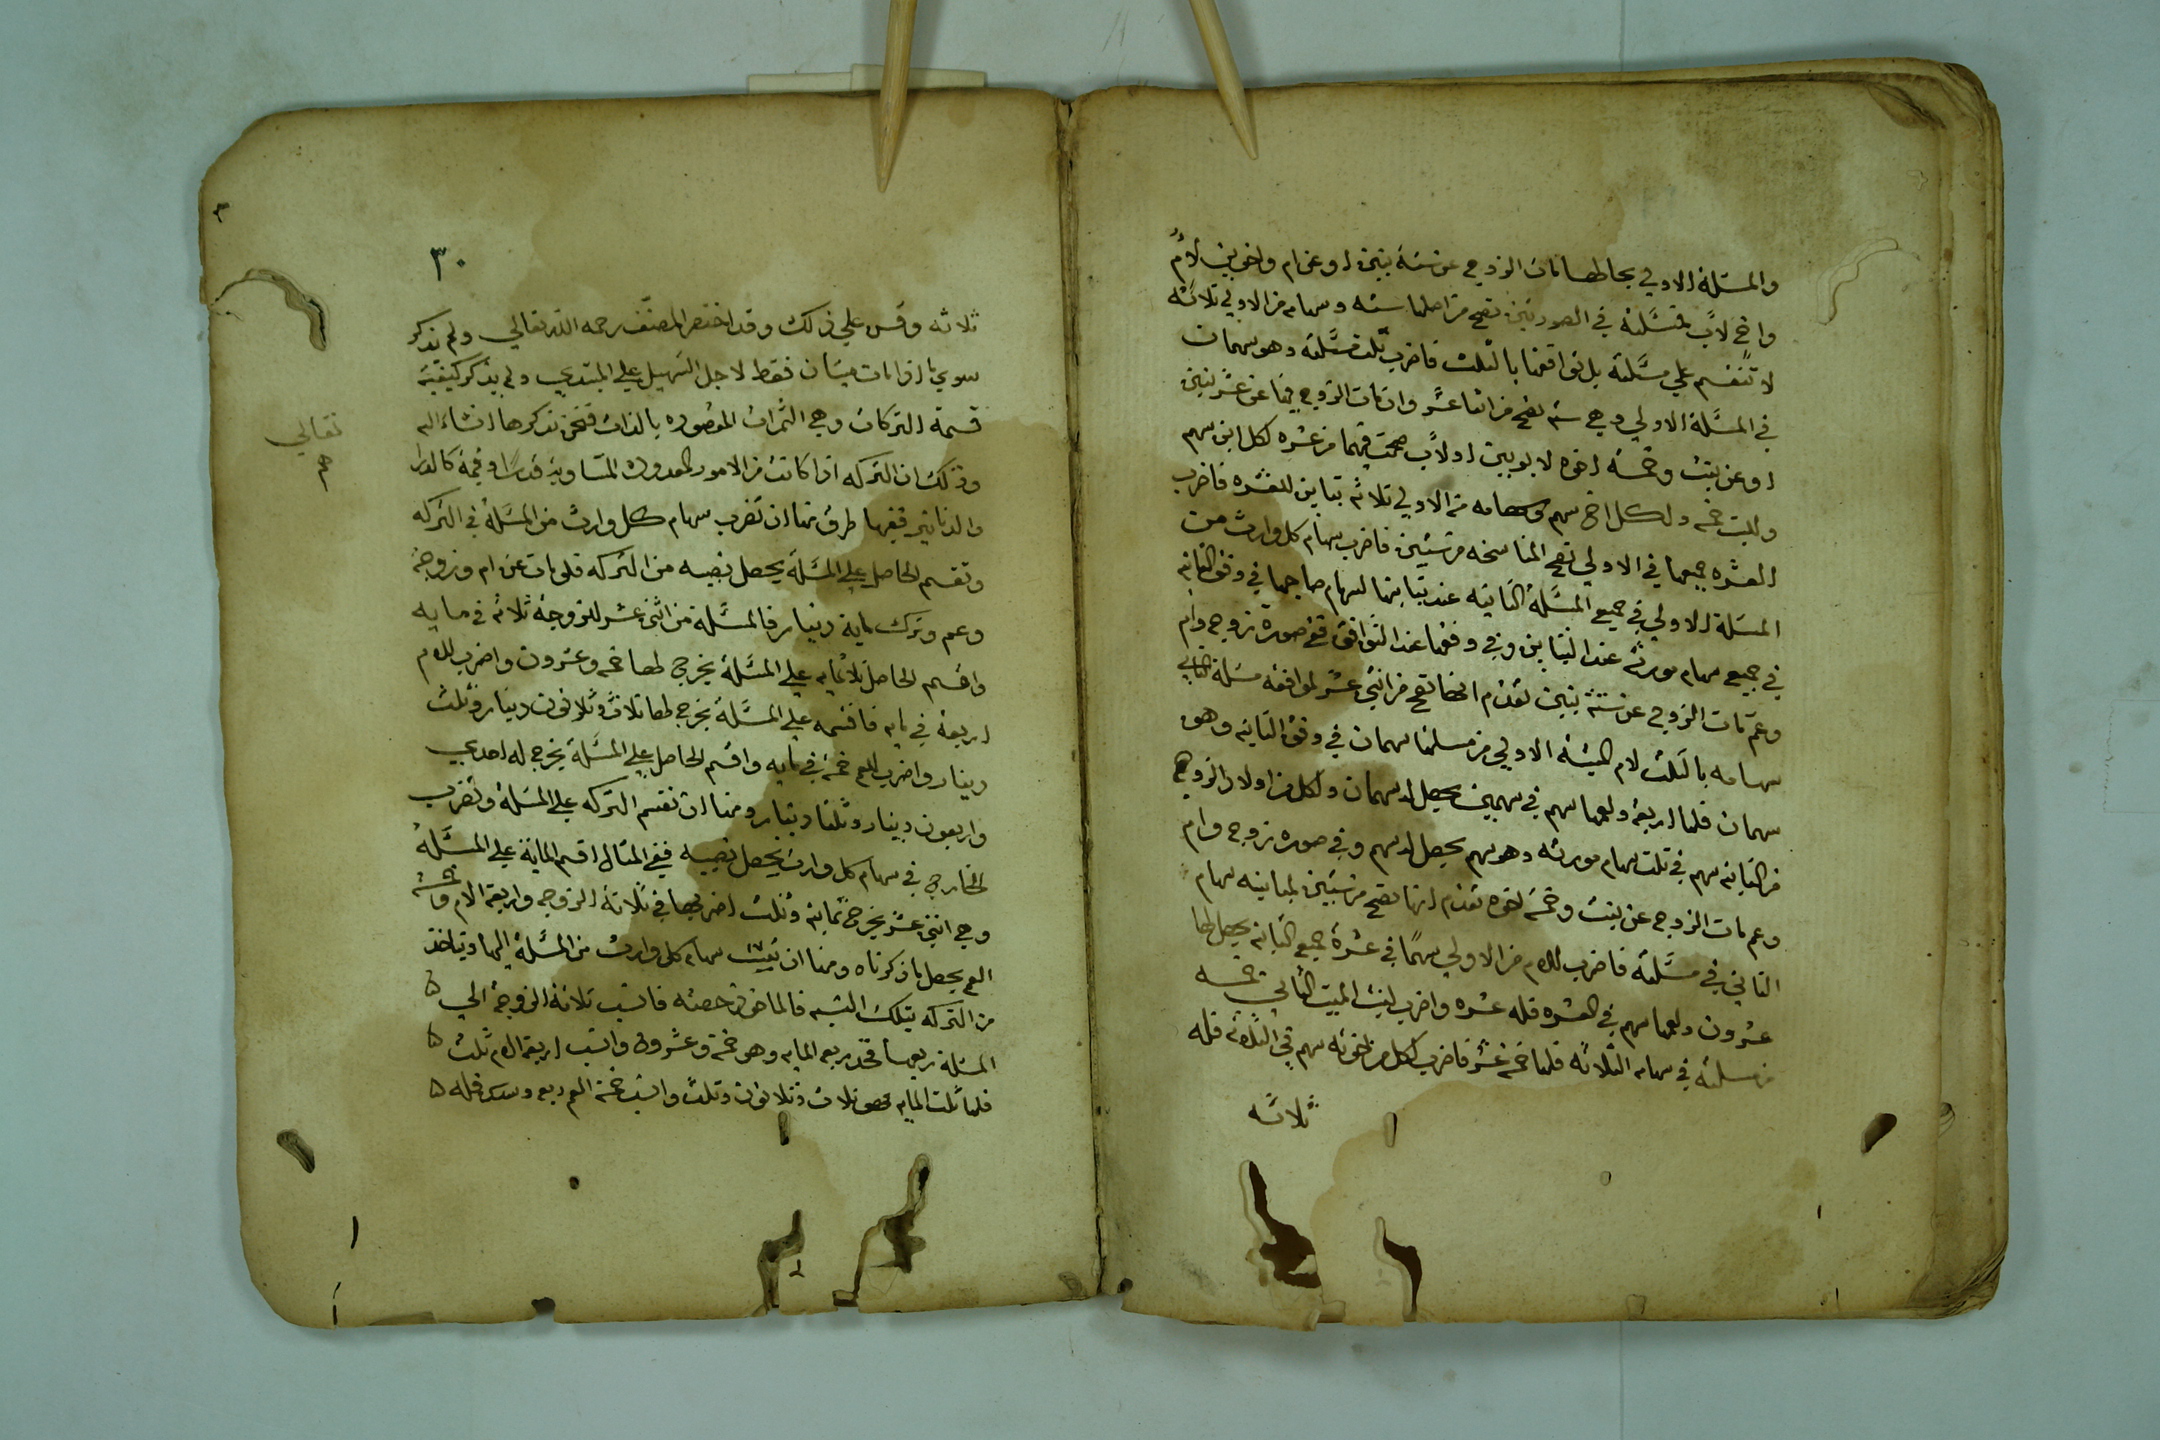 والمسئلة الاولي بحالها فان مات الزوج عن ستة بنين او عن ام واخوين لام
واخ لاب فمسئلته في الصورتين تصح من اصلها سته وسهامه من الاولي ثلاثه
لا تنقسم علي مسئلته بل توافقها بالثلث فاضرب ثلث مسئلته وهو سهمان
في المسئلة الاولي وهي ستة تصح من اثنا عشر وان مات الزوج فيها عن عشر بنين
او عن بنت وخمسة اخوه لابوين او لاب صحت فيهما من عشره لكل ابن سهم
وللبنت خمسه ولكل اخ سهم وسهامه من الاولي ثلاثه تباين للعشره فاضرب
العشره جميعها في الاولي تصح المناسخه من ستين فاضرب سهام كل وارث من
المسئلة الاولي في جميع المسئلة الثانيه عند تباينها لسهام صاحبها في وفق الثانيه
في جميع سهام مورثه عند التباين وفي وفقها عند التوافق ففي صورة زوج وام
وعم مات الزوج عن ستة بنين تقدم انها تصح من اثني عشر لموافقة مسئلة الثاني
سهامه بالثلث لام الميتة الاولي من مسئلتها سهمان في وفق الثانيه وهو
سهمان فلها اربعة ولعمها سهم في سهمين يحصل له سهمان ولكل من اولاد الزوج
من الثانيه سهم في ثلث سهام مورثه وهو سهم يحصل له سهم وفي صوره زوج وام
وعم مات الزوج عن بنت وخمسة اخوه تقدم انها تصح من ستين لمباينه سهام
الثاني في مسئلته فاضرب للام من الاولي سهما في عشرة جميع الثانيه يحصل لها
عشرون ولعمها سهم في العشره فله عشره واضرب لبنت الميت الثاني خمسه
من مسئلته في سهام الثلاثه فلها خمسة عشر فاضرب لكل من اخوته سهم في الثلاثه فله
ثلاثه
٣٠
ثلاثه وقس علي ذلك وقد اختصر المصنف رحمه الله تعالي ولم يذكر
سوي ما اذا مات ميتان فقط لاجل التسهيل علي المبتدي ولم يذكر كيفية
قسمة التركات وهي الثمرات المقصوده بالذات فنحن نذكرها ان شاء الله
تعالي
وذلك ان التركه اذا كانت من الامور المعدوده المتساوية قدرا وقيمة كالدراهم
والدنانير ففيها طرق منها ان تضرب سهام كل وارث من المسئلة في التركه
وتقسم الحاصل علي المسئلة يحصل نصيبه من التركه فلو مات عن ام وزوجة
وعم وترك ماية دينار فالمسئلة من اثني عشر للزوجة ثلاثة في مايه
واقسم الحاصل ثلاثمايه علي المسئلة يخرج لها خمسه وعشرون واضرب للام
اربعة في مايه فاقسمه علي المسئلة يخرج لها ثلاث وثلاثون دينار وثلث
دينار واضرب للعم خمسة في مايه واقسم الحاصل علي المسئلة يخرج له احدي
واربعون دينار وثلثا دينار ومنها ان تقسم التركه علي المسئلة وتضرب
الخارج في سهام كل وارث يحصل نصيبه ففي المثال اقسم الماية علي المسئلة
وهي اثني عشر يخرج ثمانية وثلث اضربها في ثلاثة الزوجه واربعة الام وخمسة
العم يحصل ما ذكرناه ومنها ان تنسب سهام كل وارث من المسئلة اليها وتاخذ
من التركه بتلك النسبه فالماخوذ حصته فانسب ثلاثة الزوجة الي
المسئلة ربعها فخذ ربع المايه وهو خمسة وعشرون وانسب اربعة الام ثلث
فلها ثلث المايه وهو ثلاث وثلاثون وثلث وانسب خمسة العم ربع وسدس فله